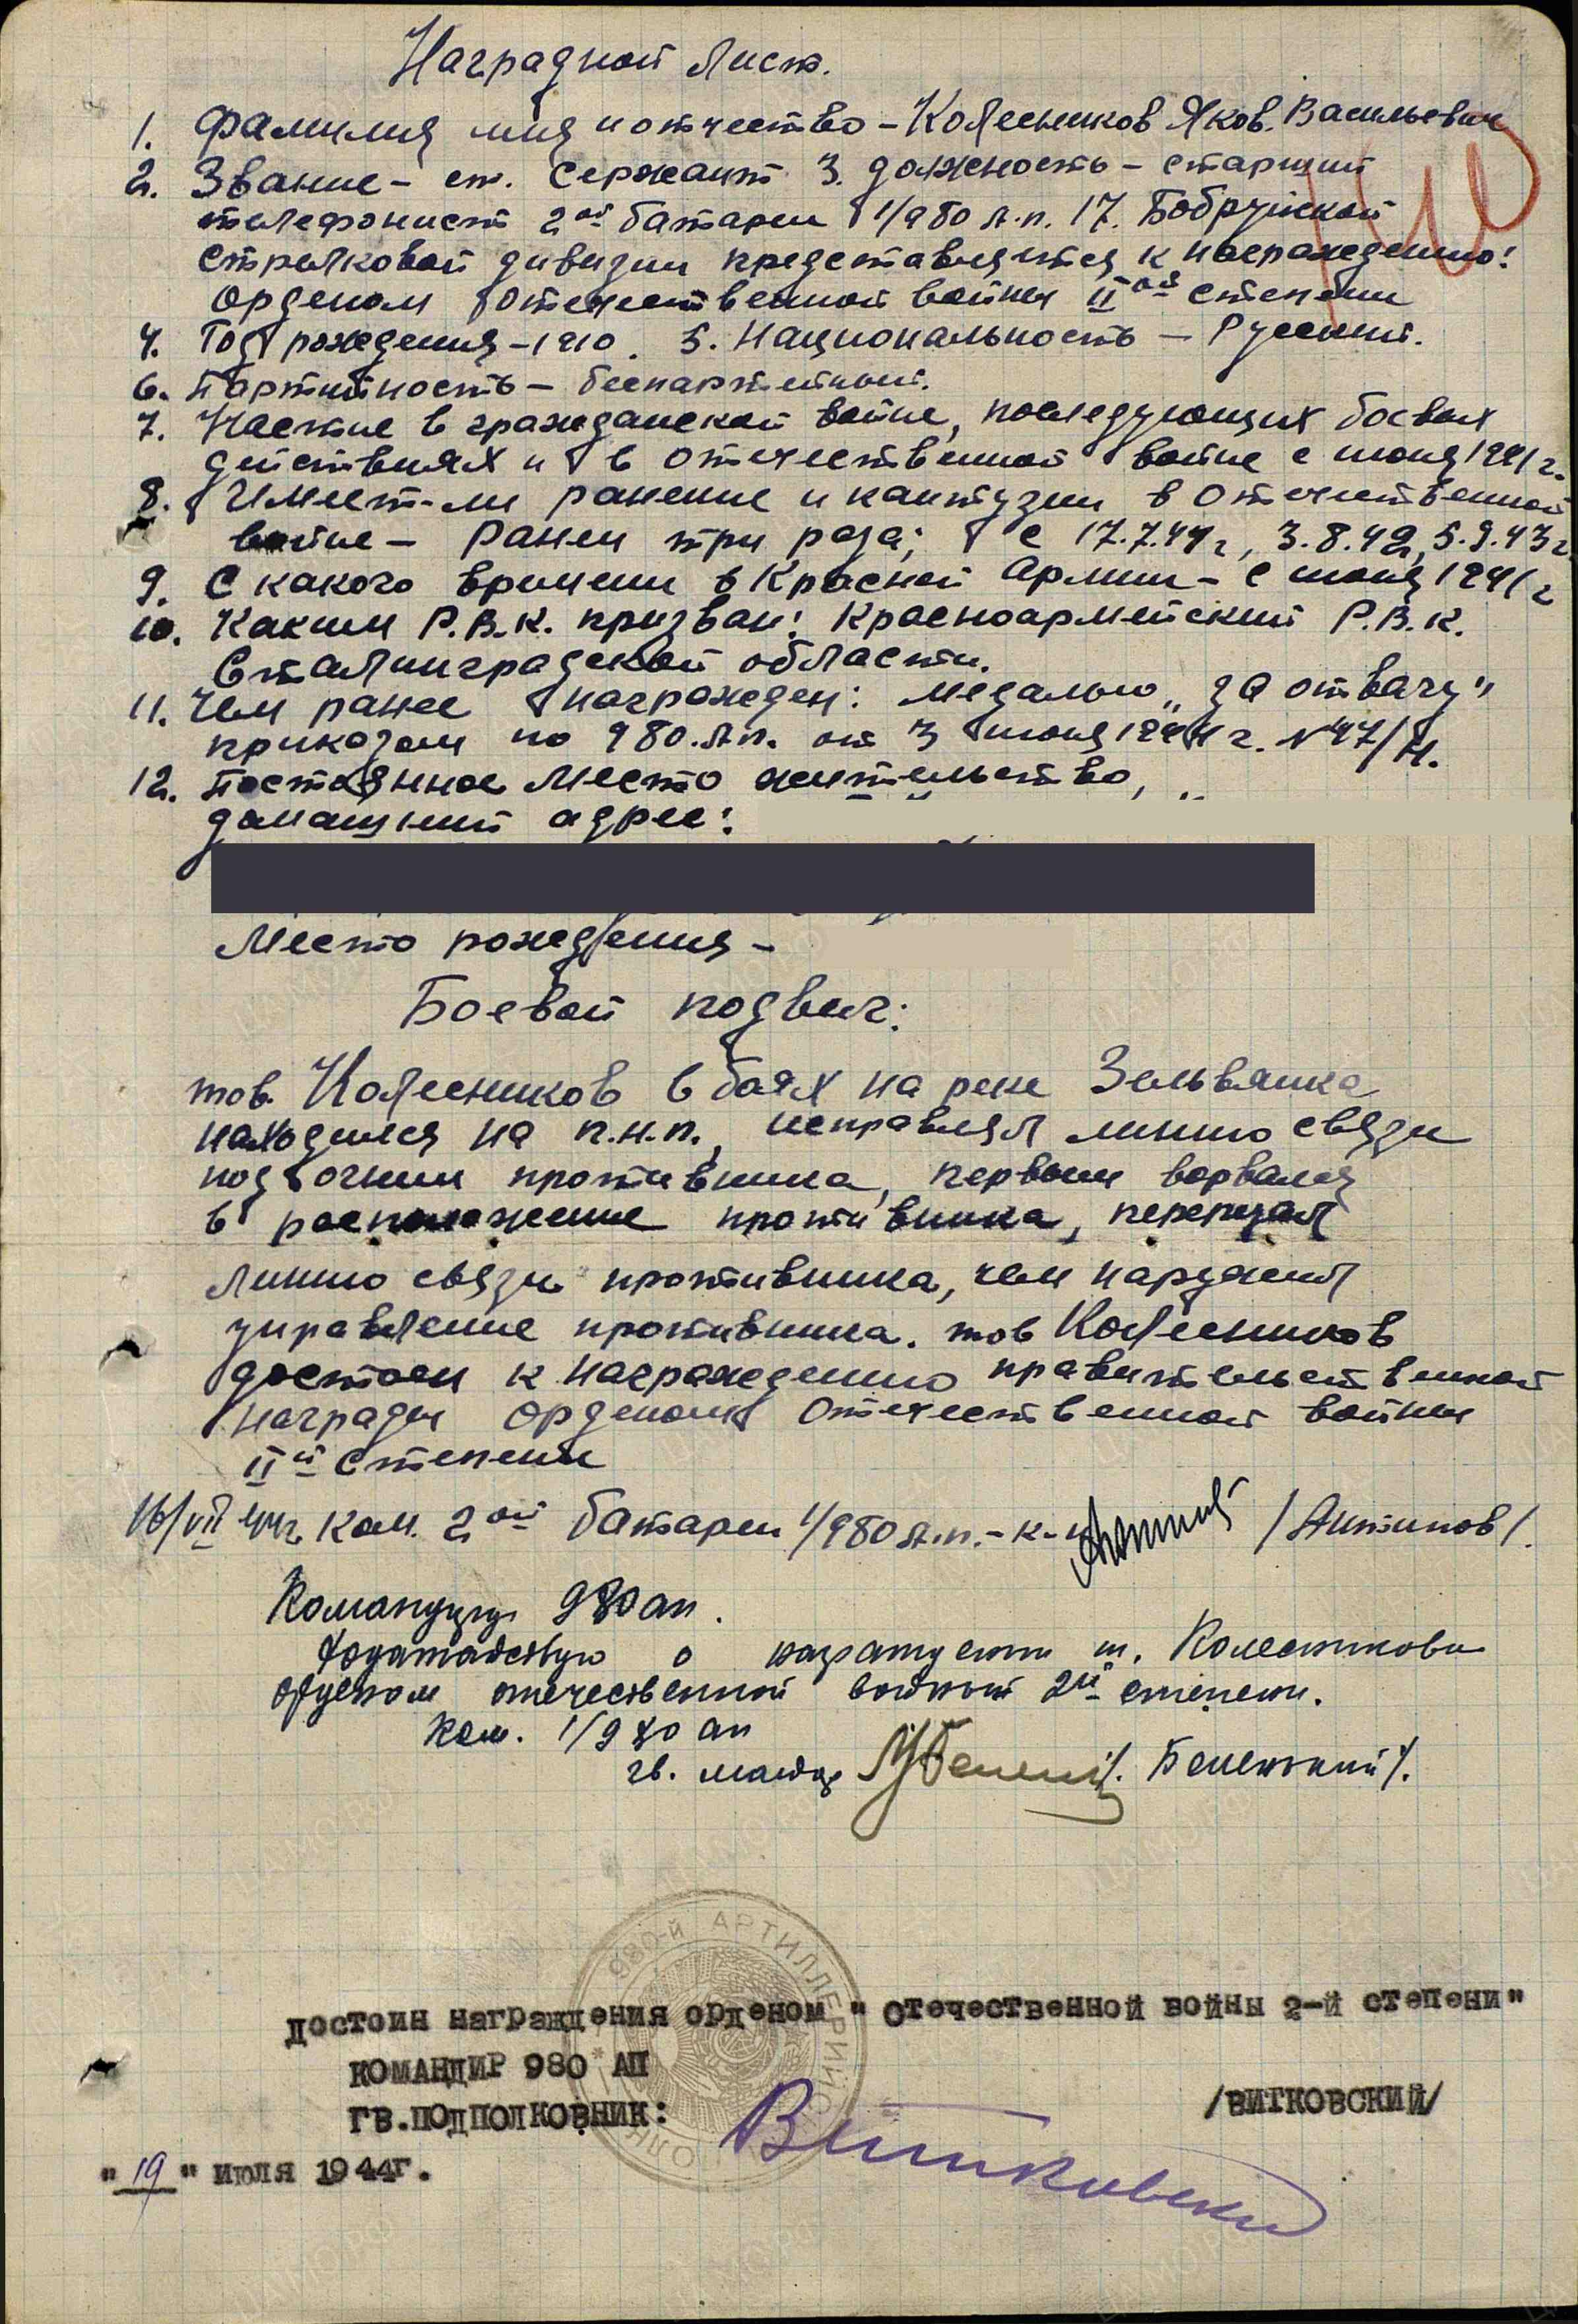 Наградной лист.
1. Фамилия имя и отчество – Колесников Яков Васильевич
2. Звание – ст. Сержант 3. должность – старший
телефонист 2ой батареи 1/980 А.п. 17. Бобруйской
стрелковой дивизии представляется к награждению:
орденом Отечественной войны IIой степени
4. Год рождения – 1910. 5. Национальность – Русский.
6. Партийность – беспартейный.
7. Участие в гражданской войне, последующих боевых
действиях и в отечественной войне с июня 1941 г.
8. Имеет-ли ранение и кантузии в Отечественной
войне – Ранен три раза; с 17.7.41г, 3.8.42г, 5.9.43г
9. С какого времени в Красной Армии – с июня 1941 г
10. Каким Р.В.К. призван: Красноармейский Р.В.К.
Сталинградской области.
11. Чем ранее награжден: медалью „за отвагу"
приказом по 980.А.п. от 3 июня 1944 г. N47/н.
12. Постоянное место жительство,
домашний адрес:
Место рождения –
Боевой подвиг:
тов. Колесников в боях на реке Зельвянка
находился на п.н.п., исправлял линию связи
под огнем противника, первым ворвался
в расположение противника, перерезал
линию связи противника, чем нарушил
управление противника. тов Колесников
достоен к награждению правительственной
награды орденом Отечественной войны
IIй степени
16/VII 44г. Ком. 2ой батареи 1/980 А.п. – к-н /Антипов/.
Командиру 980 ап.
Ходатайствую о награждении т. Колесникова
орденом отечественной войной 2й степени.
Ком. 1/980 ап
гв. майор /. Беленький/.
980-Й АРТИЛЛЕРИЙС ПОЛК
достоин награждения орденом " Отечественной войны 2-й степени"
КОМАНДИР 980 АП
ГВ.ПОДПОЛКОВНИК: /ВИТКОВСКИЙ/
Витковский
"19" июля 1944г.